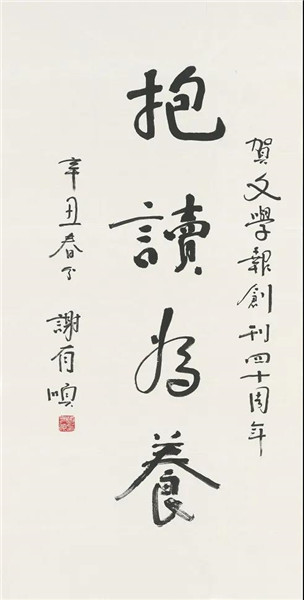 賀文學報創刊四十周年
抱讀為養
辛丑春
謝有順